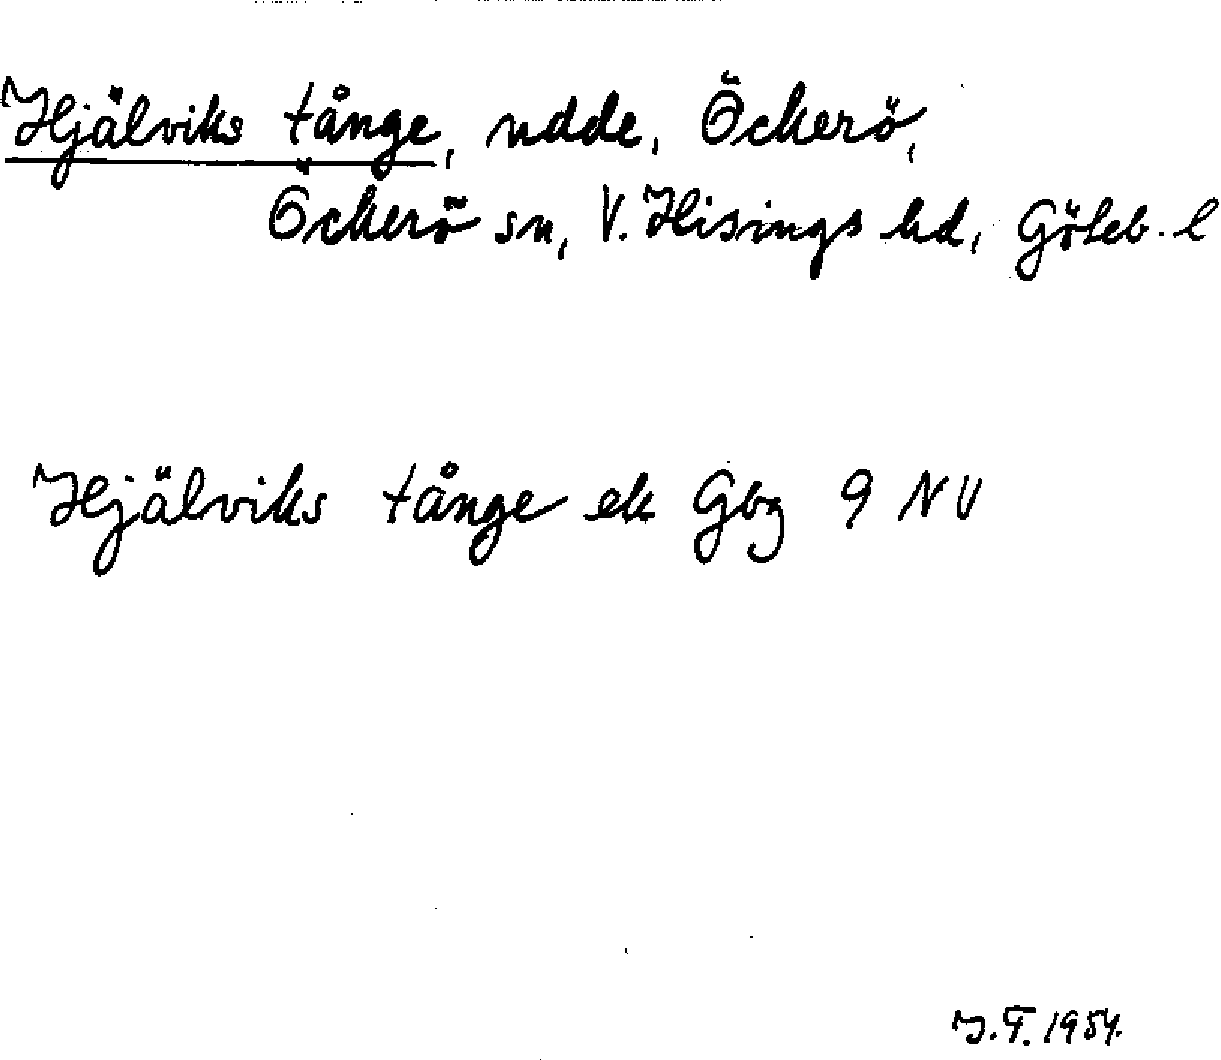 Hjälviks tånge, udde, Öckerö,
Öckerö sn, V. Hisings hd, Göteb. l
Hjälviks tånge ek Gbg 9 NV
J.T. 1954.